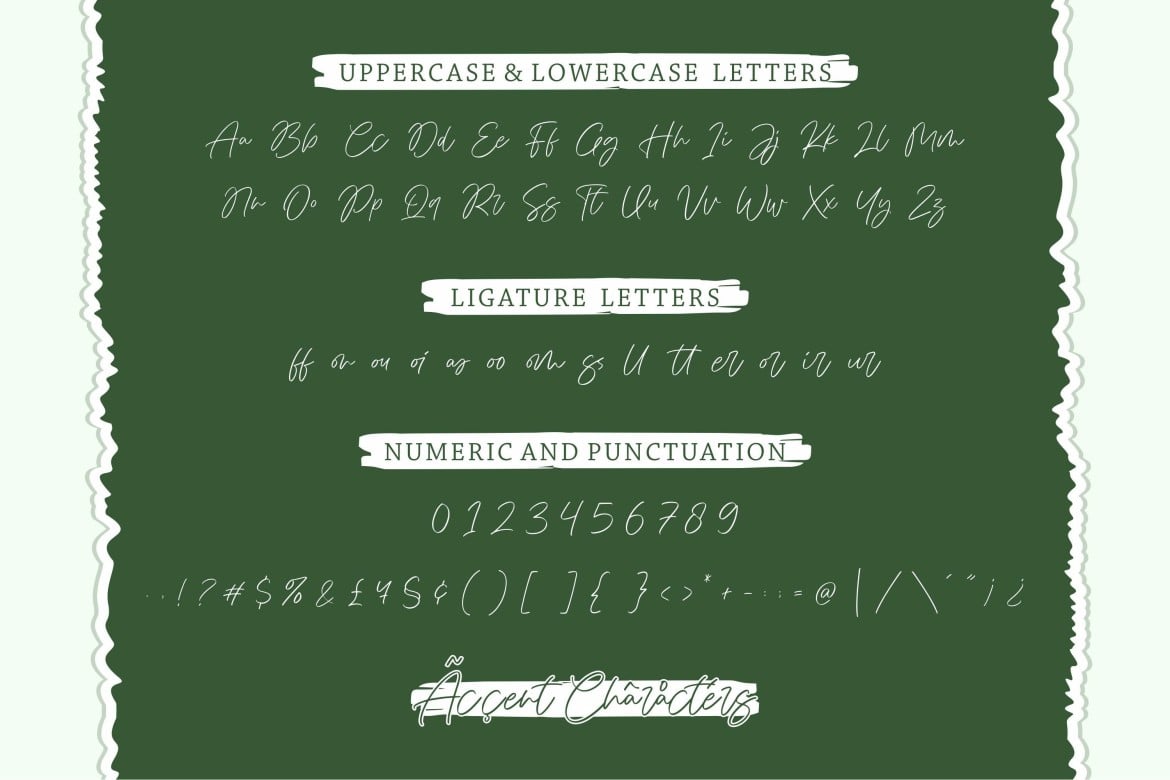 UPPERCASE & LOWERCASE LETTERS
Aa Bb Cc Dd Ee Ff Gg Hh Ii Jj Kk Ll Mm
Nn Oo Pp Qq Rr Ss Tt Uu Vv Ww Xx Yy Zz
LIGATURE LETTERS
ff on ou oi as oo om ss ll tt er or ir ur
NUMERIC AND PUNCTUATION
0 1 2 3 4 5 6 7 8 9
. . ! ? # $ % & £ ¥ § ¢ ( ) [ ] { } < > * + - : ; = @ | / \ ' " ¡ ¿
Ãcçent Châråctérs